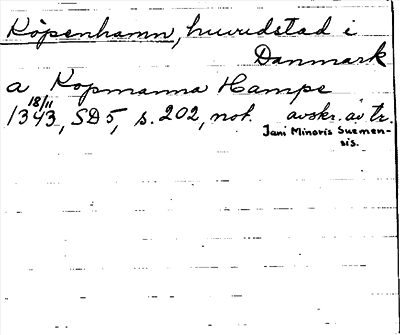 Köpenhamn, huvudstad i
Danmark
a Kopmanna Hampe
18/11
1343, SD 5, s. 202, not. avskr. av tr.
Jani Minoris Suemen-
sis.